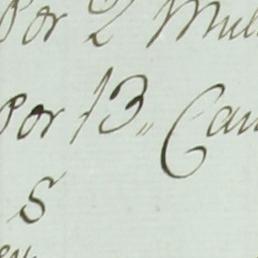 Por 2 Mul
Por 13,, Cam
S